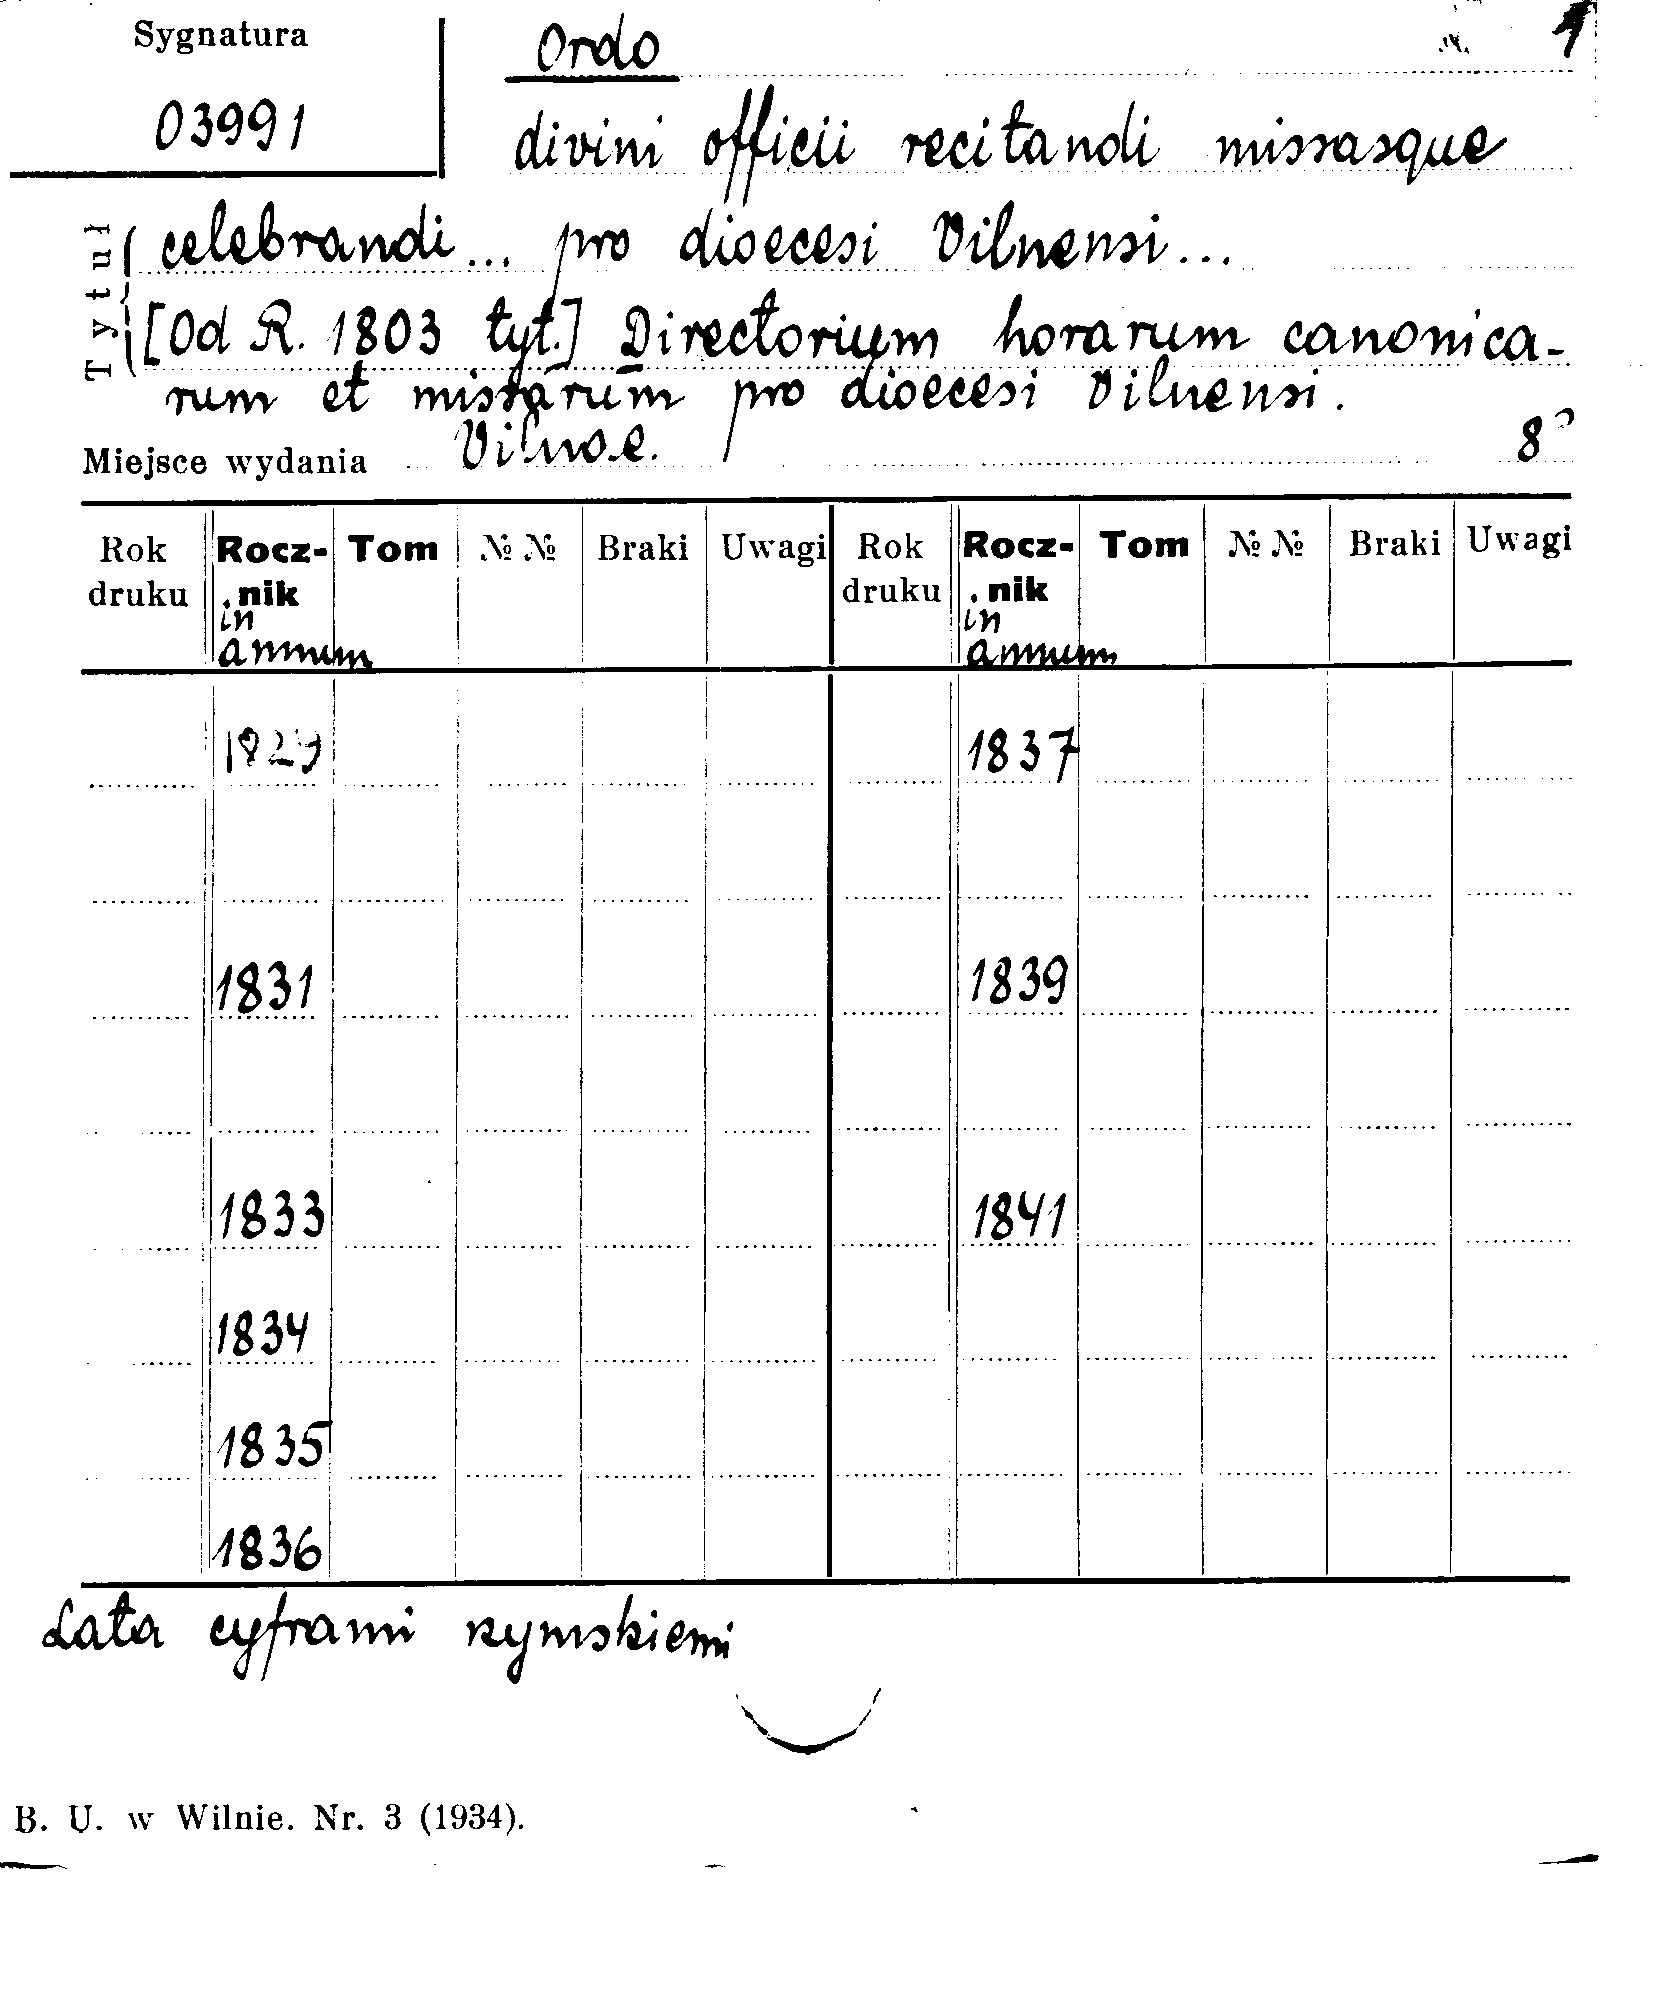 Sygnatura
03991
1
Ordo
divini officii recitandi missasque
Tytuł
celebrandi... pro dioecesi Vilnensi...
[Od R. 1803 tyt.] Directorium horarum canonica-
rum et missarum pro dioecesi Vilnensi.
Miejsce wydania Vilnae. 8°
Rok druku Rocz-nik in annum Tom №№ Braki Uwagi Rok druku Rocz-nik in annum Tom №№ Braki Uwagi
1829 1837
1831 1839
1833 1841
1834
1835
1836
Lata cyframi rzymskiemi
B. U. w Wilnie. Nr. 3 (1934).